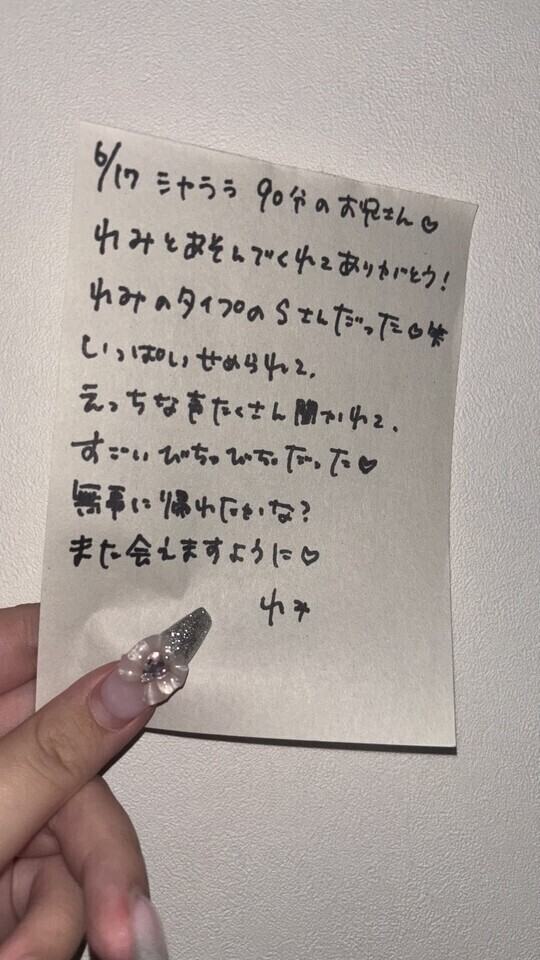 6/17 シャララ 90分のお兄さん♡
れみとあそんでくれてありがとう!
れみのタイプのSさんだった♡笑
いっぱいせめられて、
えっちな声たくさん聞かれて、
すごいびちょびちょだった♡
無事に帰れたかな?
また会えますように♡
れみ